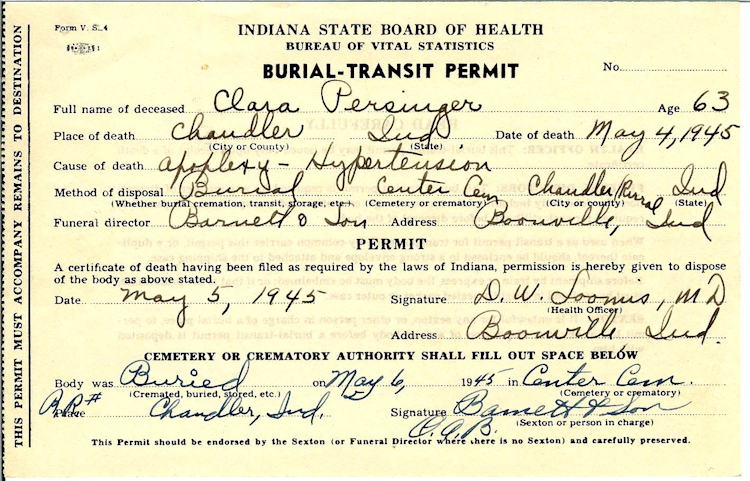 Form V. S. 4
INDIANA STATE BOARD OF HEALTH
BUREAU OF VITAL STATISTICS
BURIAL-TRANSIT PERMIT
No.
Full name of deceased Clara Persinger Age 63
Place of death Chandler Ind Date of death May 4, 1945
(City or County) (State)
Cause of death apoplexy - Hypertension
Method of disposal Burial Center Cem Chandler Rural Ind
(Whether burial cremation, transit, storage, etc.) (Cemetery or crematory) (City or county) (State)
Funeral director Barnett & Son Address Boonville, Ind
PERMIT
A certificate of death having been filed as required by the laws of Indiana, permission is hereby given to dispose
of the body as above stated.
Date May 5, 1945 Signature D. W. Loomis, MD
(Health Officer)
Address Boonville Ind.
CEMETERY OR CREMATORY AUTHORITY SHALL FILL OUT SPACE BELOW
Body was Buried on May 6, 1945 in Center Cem.
(Cremated, buried, stored, etc.) (Cemetery or crematory)
R.R.#
Place Chandler, Ind. Signature Barnett & Son
(Sexton or person in charge)
C.A.B.
This Permit should be endorsed by the Sexton (or Funeral Director where there is no Sexton) and carefully preserved.
THIS PERMIT MUST ACCOMPANY REMAINS TO DESTINATION